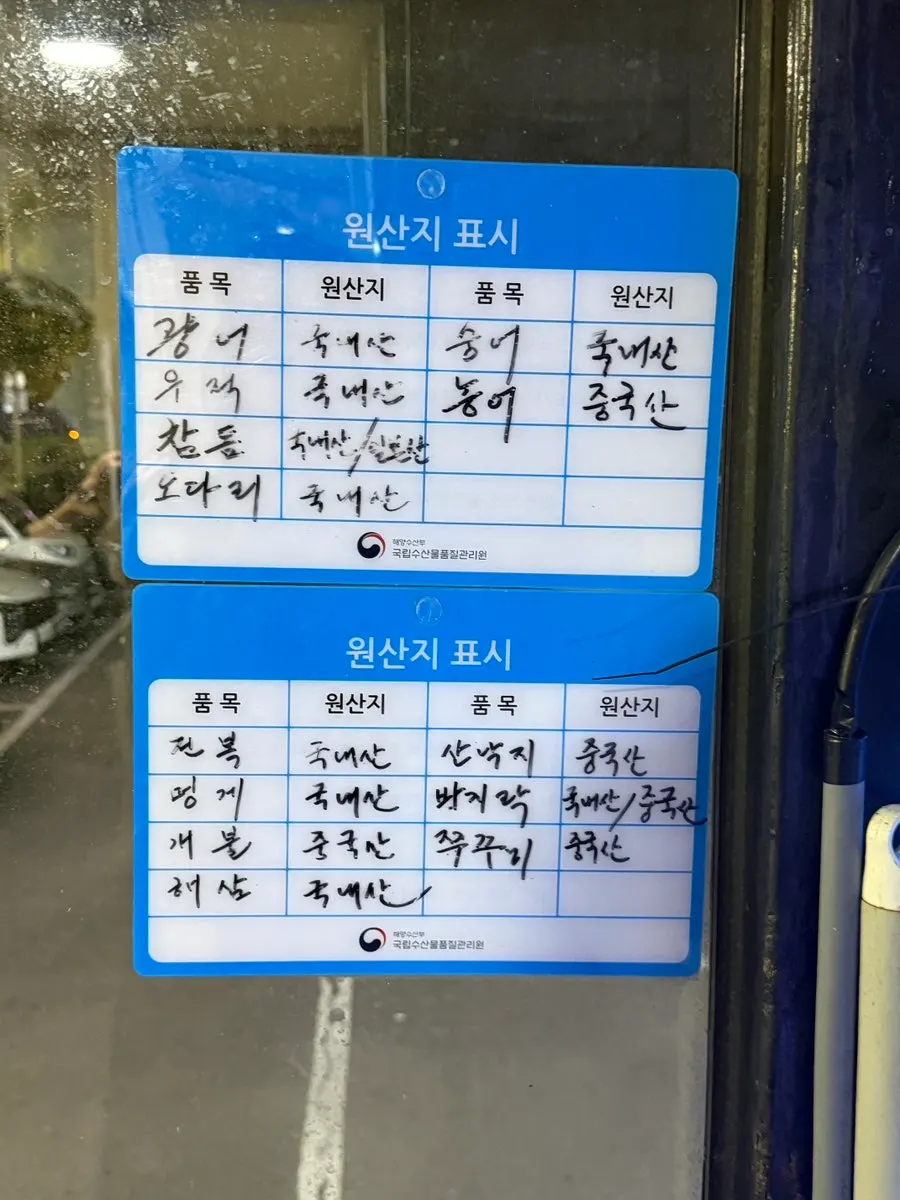 원산지 표시
품 목 원산지 품 목 원산지
광 어 국내산 숭어 국내산
우 럭 국내산 농어 중국산
참 돔 국내산/일본산
오다리 국내산
해양수산부
국립수산물품질관리원
원산지 표시
품 목 원산지 품 목 원산지
전 복 국내산 산낙지 중국산
멍 게 국내산 바지락 국내산/중국산
개 불 중국산 쭈꾸미 중국산
해 삼 국내산
해양수산부
국립수산물품질관리원